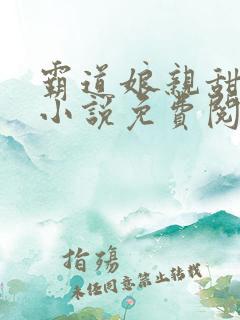 霸道娘親甜
小說免費閱
指殤
未經同意禁止轉載